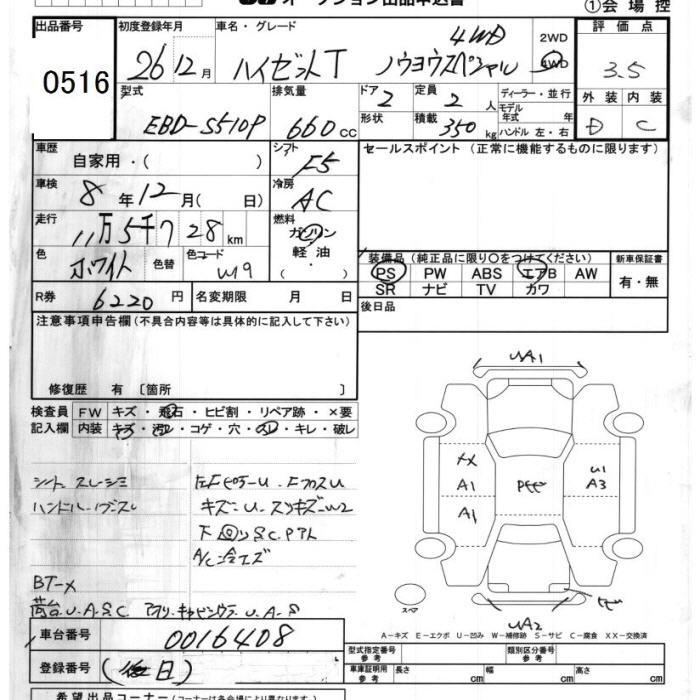 オークション出品申込書
①会場控
出品番号
0516
初度登録年月
26 12 月
車名・グレード
ハイゼットT 4WD ノウヨウスペシャル
2WD
4WD
評価点
3.5
外装 内装
D C
型式
EBD-S510P
排気量
660 cc
ドア
2
形状
定員
2 人
積載
350 kg
ディーラー・並行
モデル年式 年
ハンドル 左・右
車歴
自家用・( )
シフト
F5
セールスポイント (正常に機能するものに限ります)
車検
8 年 12 月( 日)
冷房
AC
走行
11万5千728 km
燃料
ガソリン
軽油
・( )
色
ホワイト
色替
色コード
W9
装備品(純正品に限り○をつけてください)
PS PW ABS エアB AW
SR ナビ TV カワ
新車保証書
有・無
R券
6220 円
名変期限 月 日
後日品
注意事項申告欄(不具合内容等は具体的に記入して下さい)
修復歴 有 〔箇所 〕
検査員
記入欄
FW キズ・飛石・ヒビ割・リペア跡・×要
内装 キズ・汚レ・コゲ・穴・スレ・キレ・破レ
シート スレ シミ
ハンドル
キズ
下回り S.C.
BT-X
荷台 U.A.S.C
UA1
XX
A1
A1
U1
A3
UA2
スペア
A-キズ E-エクボ U-凹み W-補修跡 S-サビ C-腐食 XX-交換済
車台番号
0016408
登録番号
(後日)
型式指定番号
参考
類別区分番号
参考
車庫証明用
参考
長さ cm 幅 cm 高さ cm
希望出品コーナー